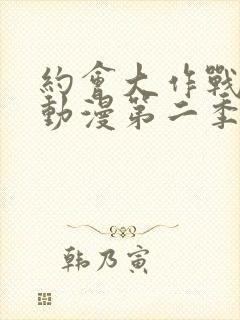 約會大作戰
動漫第二季
韩乃寅